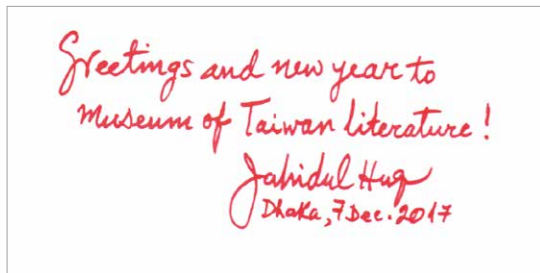 Greetings and new year to
museum of Taiwan literature!
Jahidul Huq
Dhaka, 7 Dec. 2017